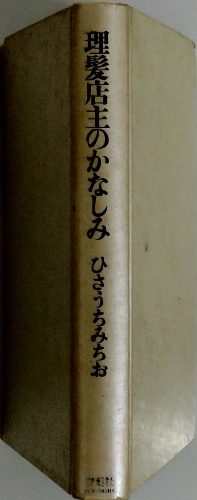 理髪店主のかなしみ
ひさうちみちお